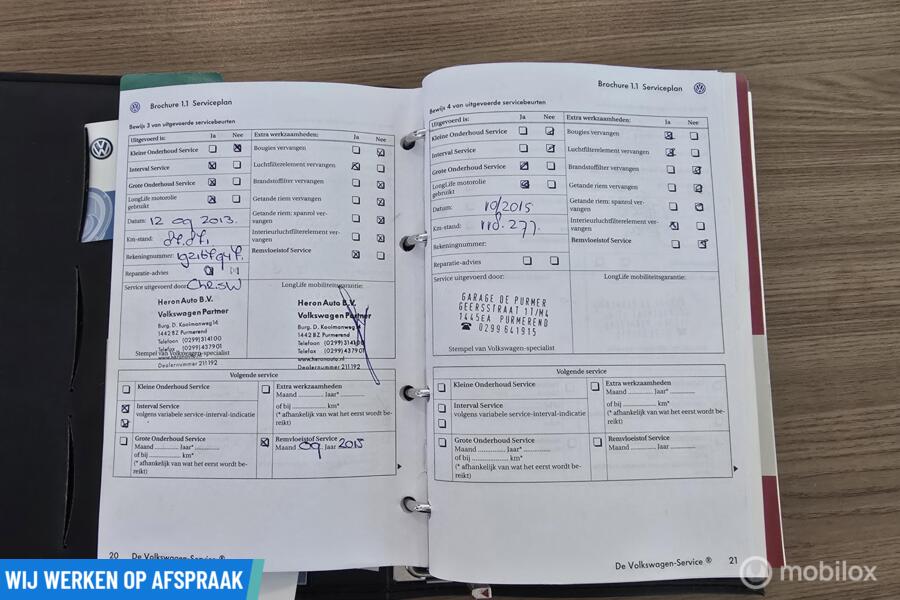 Brochure 1.1 Serviceplan
Bewijs 3 van uitgevoerde servicebeurten
Uitgevoerd is: Ja Nee
Kleine Onderhoud Service
Interval Service
Grote Onderhoud Service
LongLife motorolie
gebruikt
Datum: 12 09 2013.
Km-stand:
Rekeningnummer:
Reparatie-advies
Service uitgevoerd door: ChrisW
Heron Auto B.V.
Volkswagen Partner
Burg. D. Kooimanweg 14
1442 BZ Purmerend
Telefoon (0299) 314100
Telefax (0299) 437901
www.heronauto.nl
Dealernummer 211192
Stempel van Volkswagen-specialist
Extra werkzaamheden: Ja Nee
Bougies vervangen
Luchtfilterelement vervangen
Brandstoffilter vervangen
Getande riem vervangen
Getande riem: spanrol ver-
vangen
Interieurluchtfilterelement ver-
vangen
Remvloeistof Service
LongLife mobiliteitsgarantie:
Heron Auto B.V.
Volkswagen Partner
Burg. D. Kooimanweg
1442 BZ Purmerend
Telefoon (0299) 314100
Telefax (0299) 437901
www.heronauto.nl
Dealernummer 211192
Volgende service
Kleine Onderhoud Service
Interval Service
volgens variabele service-interval-indicatie
Grote Onderhoud Service
Maand Jaar*
of bij km*
(* afhankelijk van wat het eerst wordt be-
reikt)
Extra werkzaamheden
Maand Jaar*
of bij km*
(* afhankelijk van wat het eerst wordt be-
reikt)
Remvloeistof Service
Maand 09 Jaar 2015
20 De Volkswagen-Service ®
Brochure 1.1 Serviceplan
Bewijs 4 van uitgevoerde servicebeurten
Uitgevoerd is: Ja Nee
Kleine Onderhoud Service
Interval Service
Grote Onderhoud Service
LongLife motorolie
gebruikt
Datum: 10/2015
Km-stand: 110.277.
Rekeningnummer:
Reparatie-advies
Service uitgevoerd door:
GARAGE DE PURMER
GEERSSTRAAT 17/M4
1445EA PURMEREND
☎ 0299 641915
Stempel van Volkswagen-specialist
Extra werkzaamheden: Ja Nee
Bougies vervangen
Luchtfilterelement vervangen
Brandstoffilter vervangen
Getande riem vervangen
Getande riem: spanrol ver-
vangen
Interieurluchtfilterelement ver-
vangen
Remvloeistof Service
LongLife mobiliteitsgarantie:
Volgende service
Kleine Onderhoud Service
Interval Service
volgens variabele service-interval-indicatie
Grote Onderhoud Service
Maand Jaar*
of bij km*
(* afhankelijk van wat het eerst wordt be-
reikt)
Extra werkzaamheden
Maand Jaar*
of bij km*
(* afhankelijk van wat het eerst wordt be-
reikt)
Remvloeistof Service
Maand Jaar
De Volkswagen-Service ® 21
WIJ WERKEN OP AFSPRAAK
mobilox